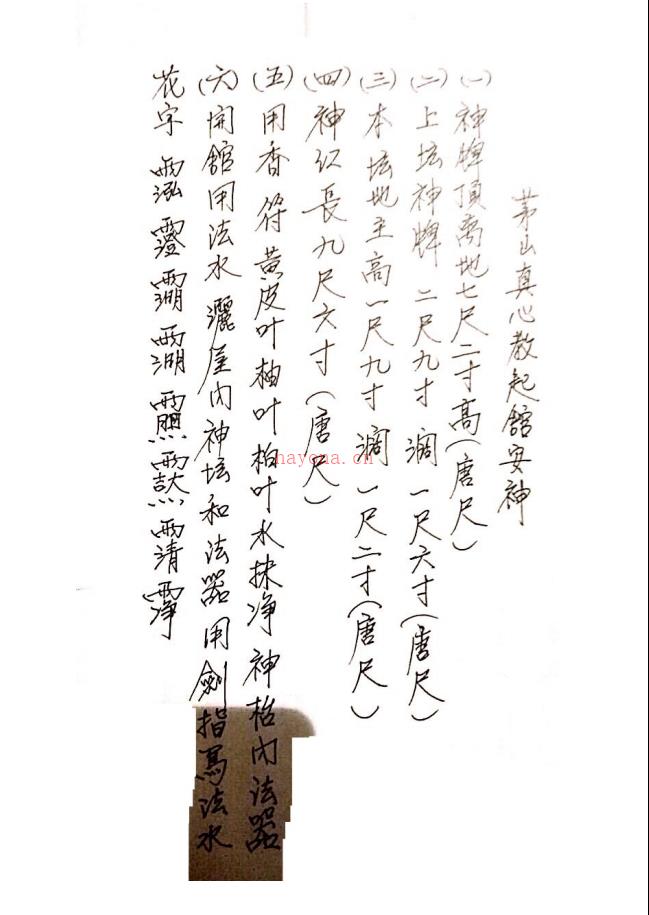 茅山真心教起舘安神
(一)神牌頂离地七尺二寸高(唐尺)
(二)上坛神牌 二尺九寸 濶一尺六寸(唐尺)
(三)本坛地主高一尺九寸 濶一尺二寸(唐尺)
(四)神红長九尺六寸(唐尺)
(五)用香 符 黄皮叶 柚叶 柏叶水抹净 神枱内法器
(六)開舘用法水 灑屋内神坛和法器用劍指寫法水
花字
hayona.cn